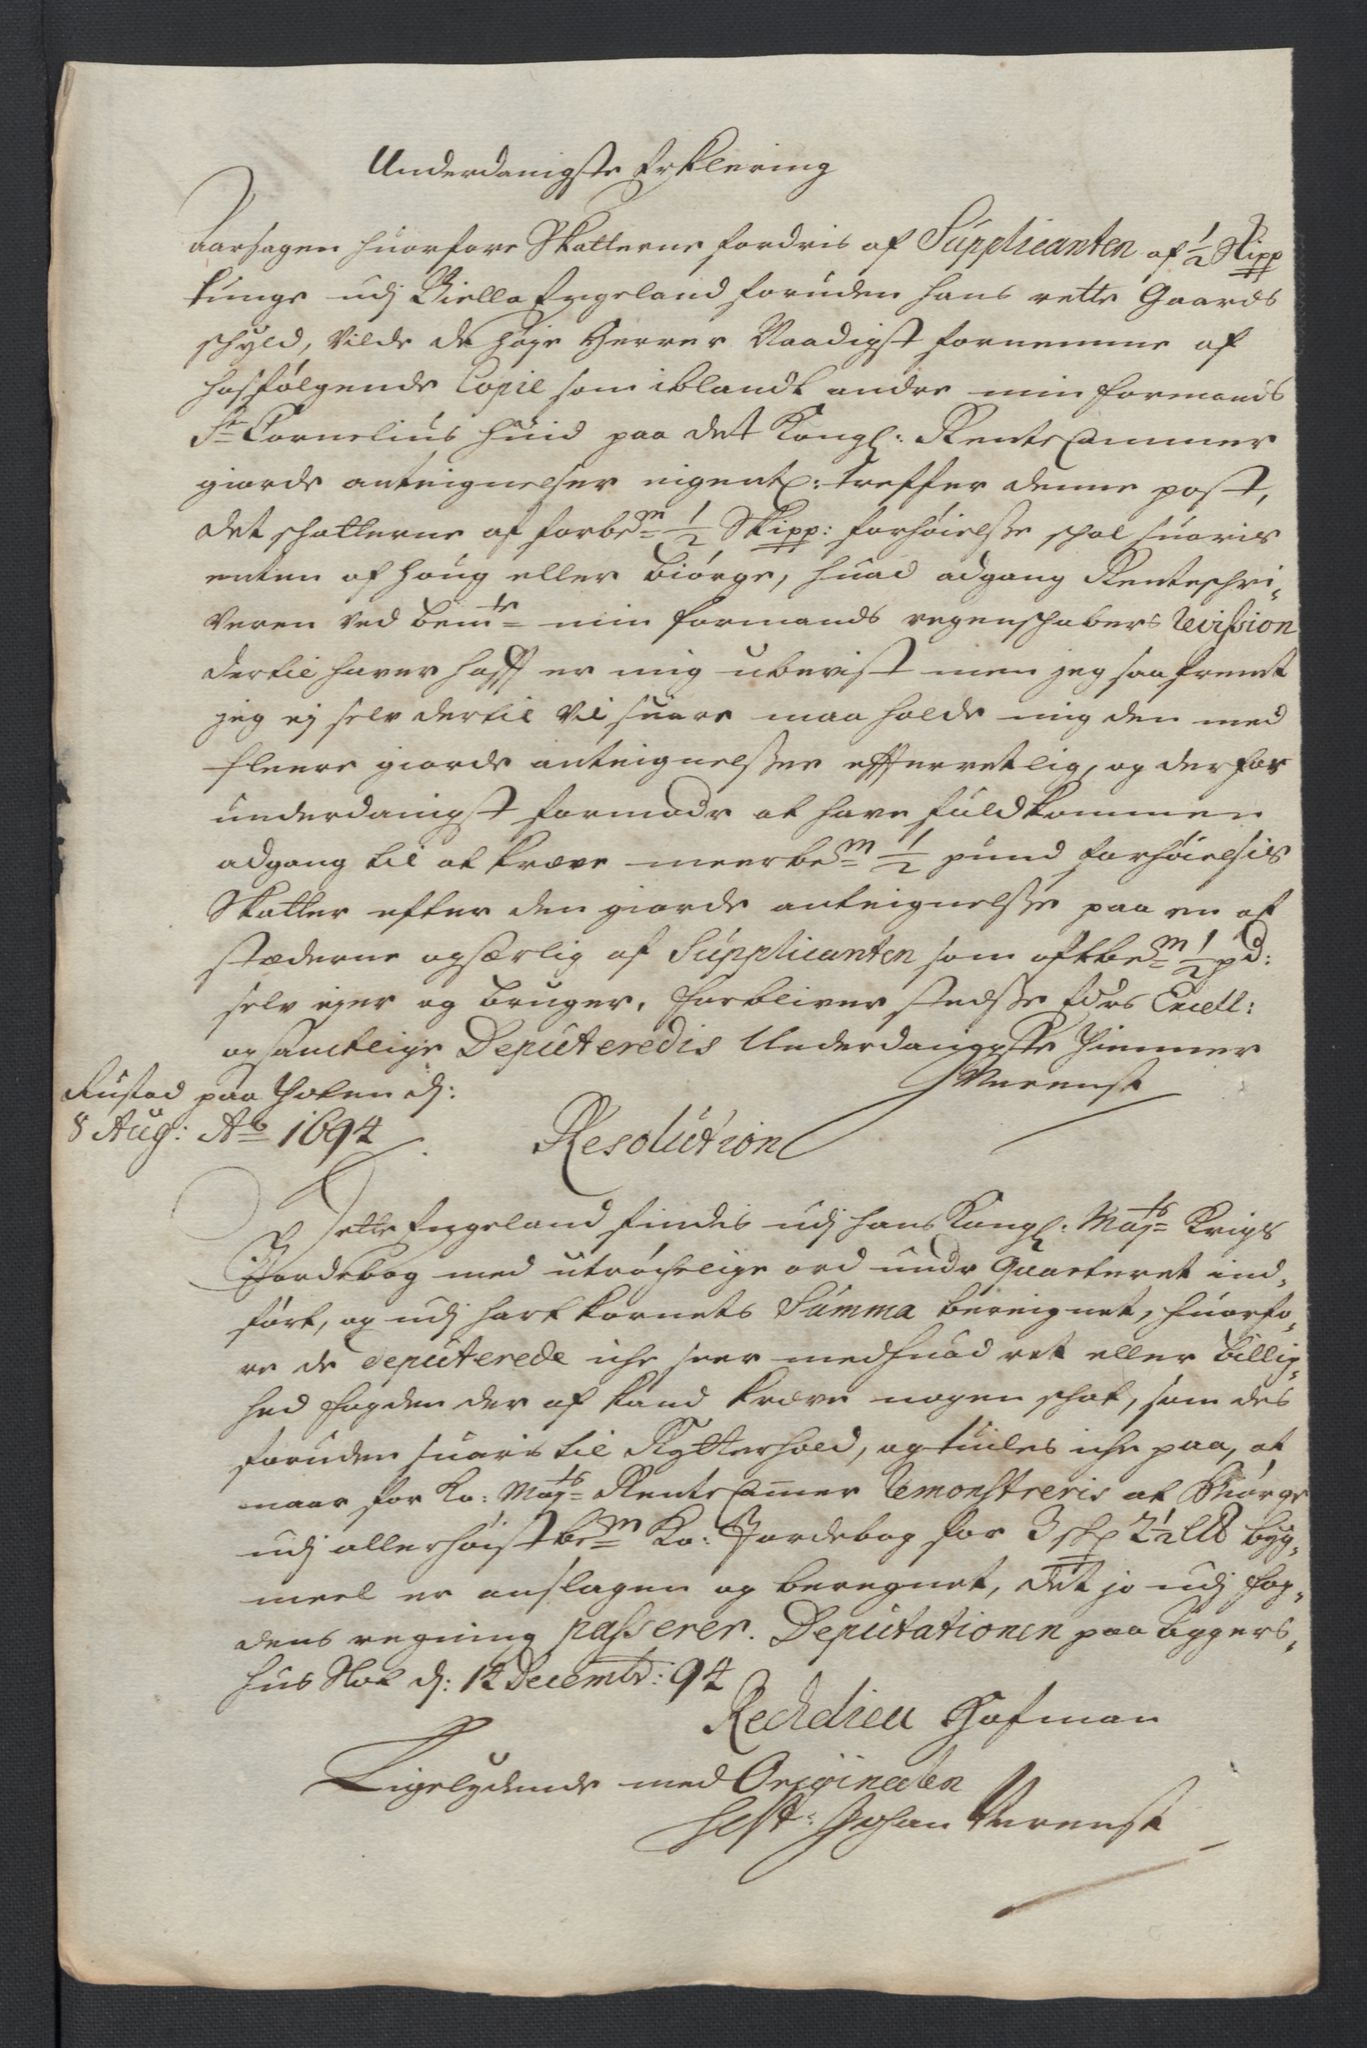 Underdanigste Erklering
Aarsagen huorfore Skatterne fordris af Supplicanten af ½ Skipp
tunge udj Biella Engeland foruden hans rette Gaards
schyld, Vilde de høje Herrer Naadigst fornemme af
hosfølgende Copie som iblandt andre min formands
Sr Cornelius Huid paa det Kongl: RenteCammer
giorde anteignelser eigentl: treffer denne post,
det schatterne af forbem ½ Skipp: forhøielsse schal suaris
enten af Houg eller Biørge, huad adgang Renteschri,
veren ved bemte min formands regenschabers Revission
dertil haver hafft er mig ubevist men jeg saafremt
jeg ej selv dertil vil suare maa holde mig den med
fleere giorde anteignelsser effterretlig, og derfor
underdanigst formode at have fuldkommen
adgang til at kræve meerbem ½ pund forhøielsis
Skatter efter den giorde anteignelsse paa en af
stæderne og særlig af Supplicanten som oftbem ½ pd:
selv ejer og bruger, forbliver stedsse Eders Excell:
og samtlige Deputeredis Underdanigste Thienner
Rustad paa Thoten dj: Wrenst
8 Aug: Ao 1694
Resolution
Dette Engeland findis udj hans Kongl: Mayts Krigs
Jordebog med utrøchelige ord under Quarteret ind,
ført, og udj hartkornets Summa bereignet, huorfo,
re de Deputerede iche seer medhuad ret eller billig,
hed fogden der af kand kræve nogen schat, som des
foruden suaris til Rytterhold, og tuiles iche paa, at
naar for Ko: Mayts RenteCamer Remonstreris at Biørge
udj allerhøistbem Ko: Jordebog for 3 skp 2½ lb byg,
meel er anslagen og beregnet, det jo udj fog,
dens regning passerer. Deputationen paa Aggers,
huus Slot dj: 14 Decembr: 94
Rechdieu Hofman
Ligelydende med Originalen
Test: Johan Wrenst